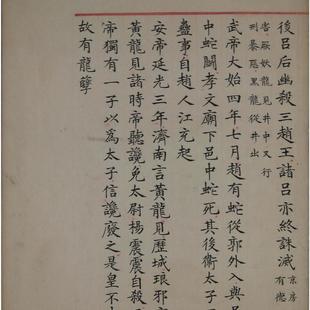 後呂后幽殺三趙王諸呂亦終誅滅
京房
有德
害厥妖龍見井中又行
刑暴惡黑龍從井出
武帝大始四年七月趙有蛇從郭外入與邑
中蛇鬭孝文廟下邑中蛇死其後衛太子
蠱事自趙人江充起
安帝延光三年濟南言黃龍見歷城琅邪
黃龍見諸時帝聽讒免太尉楊震震自殺
帝獨有一子以爲太子信讒廢之是皇不
故有龍孽